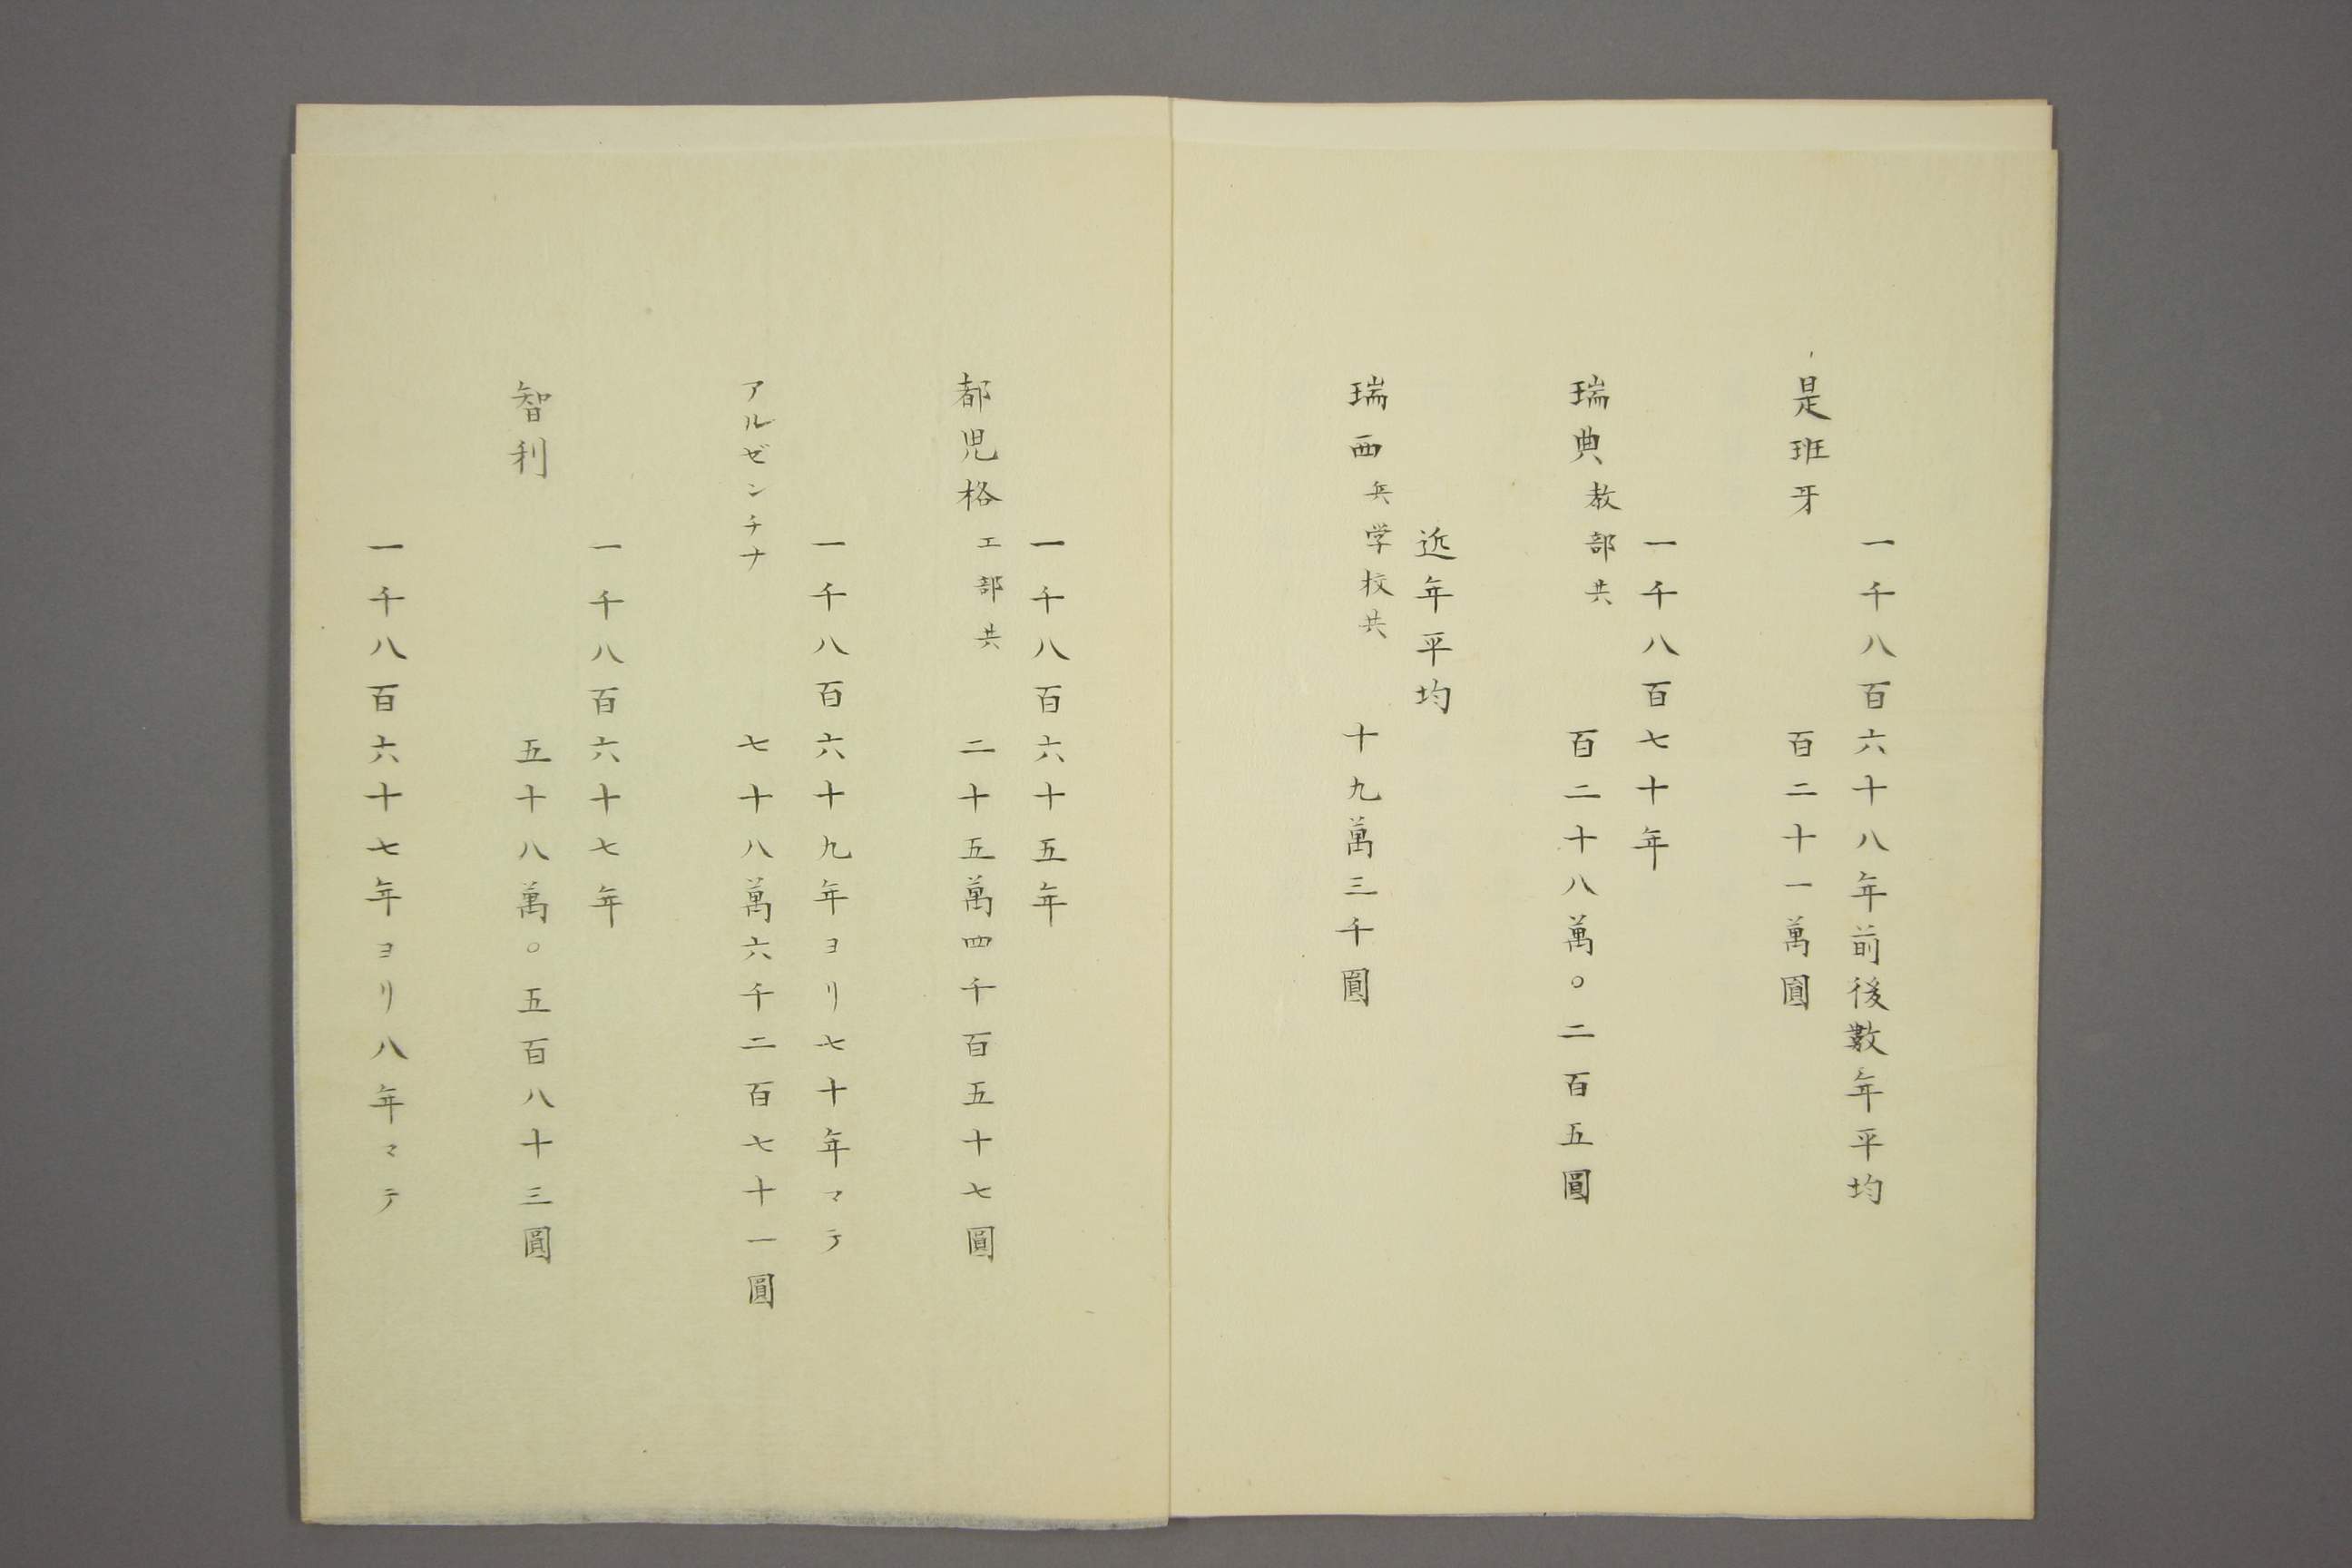 一千八百六十八年前後數年平均
是班牙 百二十一萬圓
一千八百七十年
瑞典教部共 百二十八萬〇二百五圓
近年平均
瑞西兵学校共 十九萬三千圓
一千八百六十五年
都児格工部共 二十五萬四千百五十七圓
一千八百六十九年ヨリ七十年マテ
アルゼンチナ 七十八萬六千二百七十一圓
一千八百六十七年
智利 五十八萬〇五百八十三圓
一千八百六十七年ヨリ八年マテ